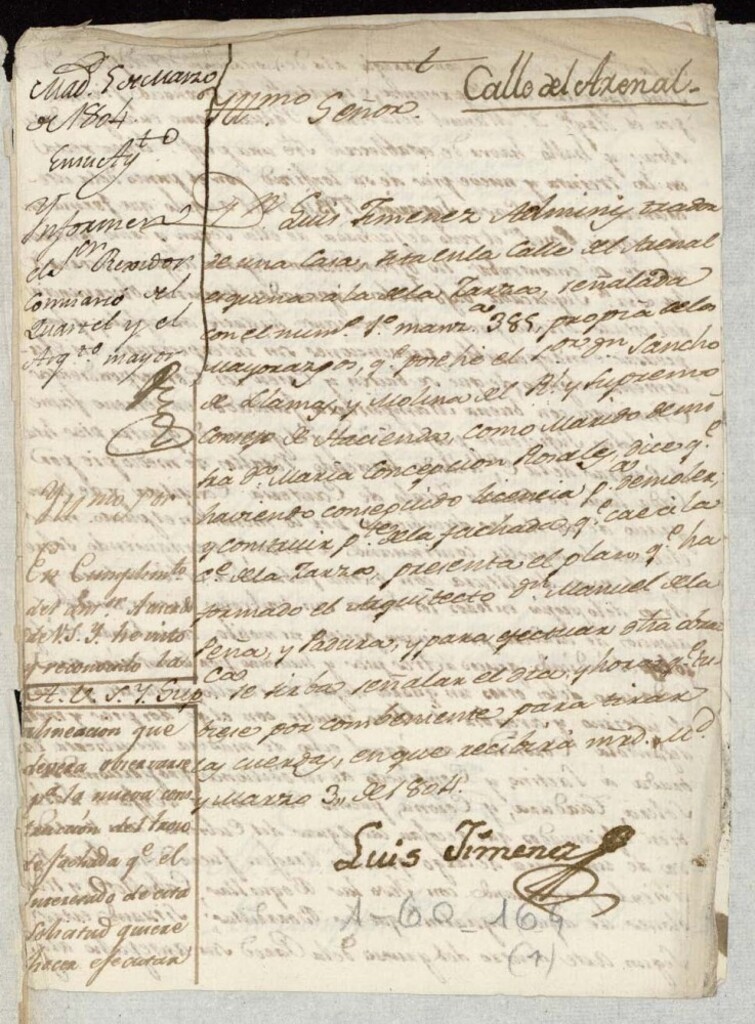 Calle del Arenal
Yll.mo Señor.
Luis Jimenez Administrador
de una Casa, sita en la Calle del Arenal
esquina á la de la Zarza, señalada
con el num.o 1.o manz.a 385, propia de los
Mayorazgos, q.e posehe el S.or D.n Sancho
de Llamas, y Molina del R.l y Supremo
Consejo de Hacienda, como Marido de
D.a Maria Concepcion Rosales, dice q.e
haviendo conseguido licencia p.a demoler,
y construir p.te de la fachada, q.e cae á la
C.e de la Zarza, presenta el plan, q.e ha
formado el Arquitecto D.n Manuel de la
Peña, y Padura, y para efectuar dha obra
A. V. S. Y. Sup.ca se sirba señalar el dia, y hora q.e tu-
biese por combeniente para tirar
la cuerda, en que recibirá mrd. M.d
y Marzo 3,, de 1804.
Luis Jimenez
Mad. 5 de Marzo
de 1804
En su Ay.to
Ynformen
el S.or Rexidor
Comisario del
Quartel y el
Arq.to mayor
Yll.mo Señor
En Cumplim.to
del ant.r Acuerdo
de V.S.Y. he visto
y reconocido la
alineacion que
devera observarse
p.a la nueva cons-
truccion del trozo
de fachada q.e el
interesado de esta
solicitud quiere
hacer executar
1-60-169
(1)